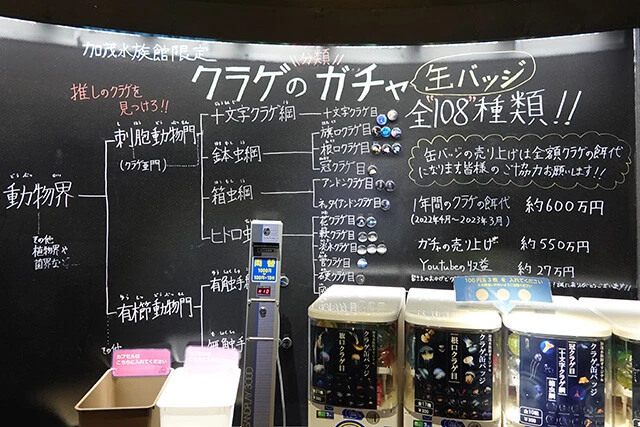 加茂水族館限定
分類!!
クラゲのガチャ
缶バッジ
全"108"種類!!
推しのクラゲを
見つけろ!!
動物界
どうぶつかい
その他
植物界や
菌界など
刺胞動物門
(クラゲ亜門)
有櫛動物門
その他
十文字クラゲ綱
鉢虫綱
箱虫綱
ヒドロ虫
有触手
無触手
十文字クラゲ目
旗口クラゲ目
根口クラゲ目
冠クラゲ目
アンドンクラゲ目
ネッタイアンドンクラゲ目
花クラゲ目
軟クラゲ目
淡水クラゲ目
管クラゲ目
硬クラゲ目
缶バッジの売り上げは全額クラゲの餌代
になります皆様のご協力お願いします!!
1年間のクラゲの餌代 約600万円
(2022年4月~2023年3月)
ガチャの売り上げ 約550万円
Youtubeの収益 約27万円
両替
1000円
100円
カプセルは
こちらに入れてください
100円玉3枚を入れてください
クラゲ缶バッジ
旗口クラゲ目
クラゲ缶バッジ
根口クラゲ目
¥300
クラゲ缶バッジ
冠クラゲ目
十文字クラゲ綱
箱虫綱
全10種
¥300